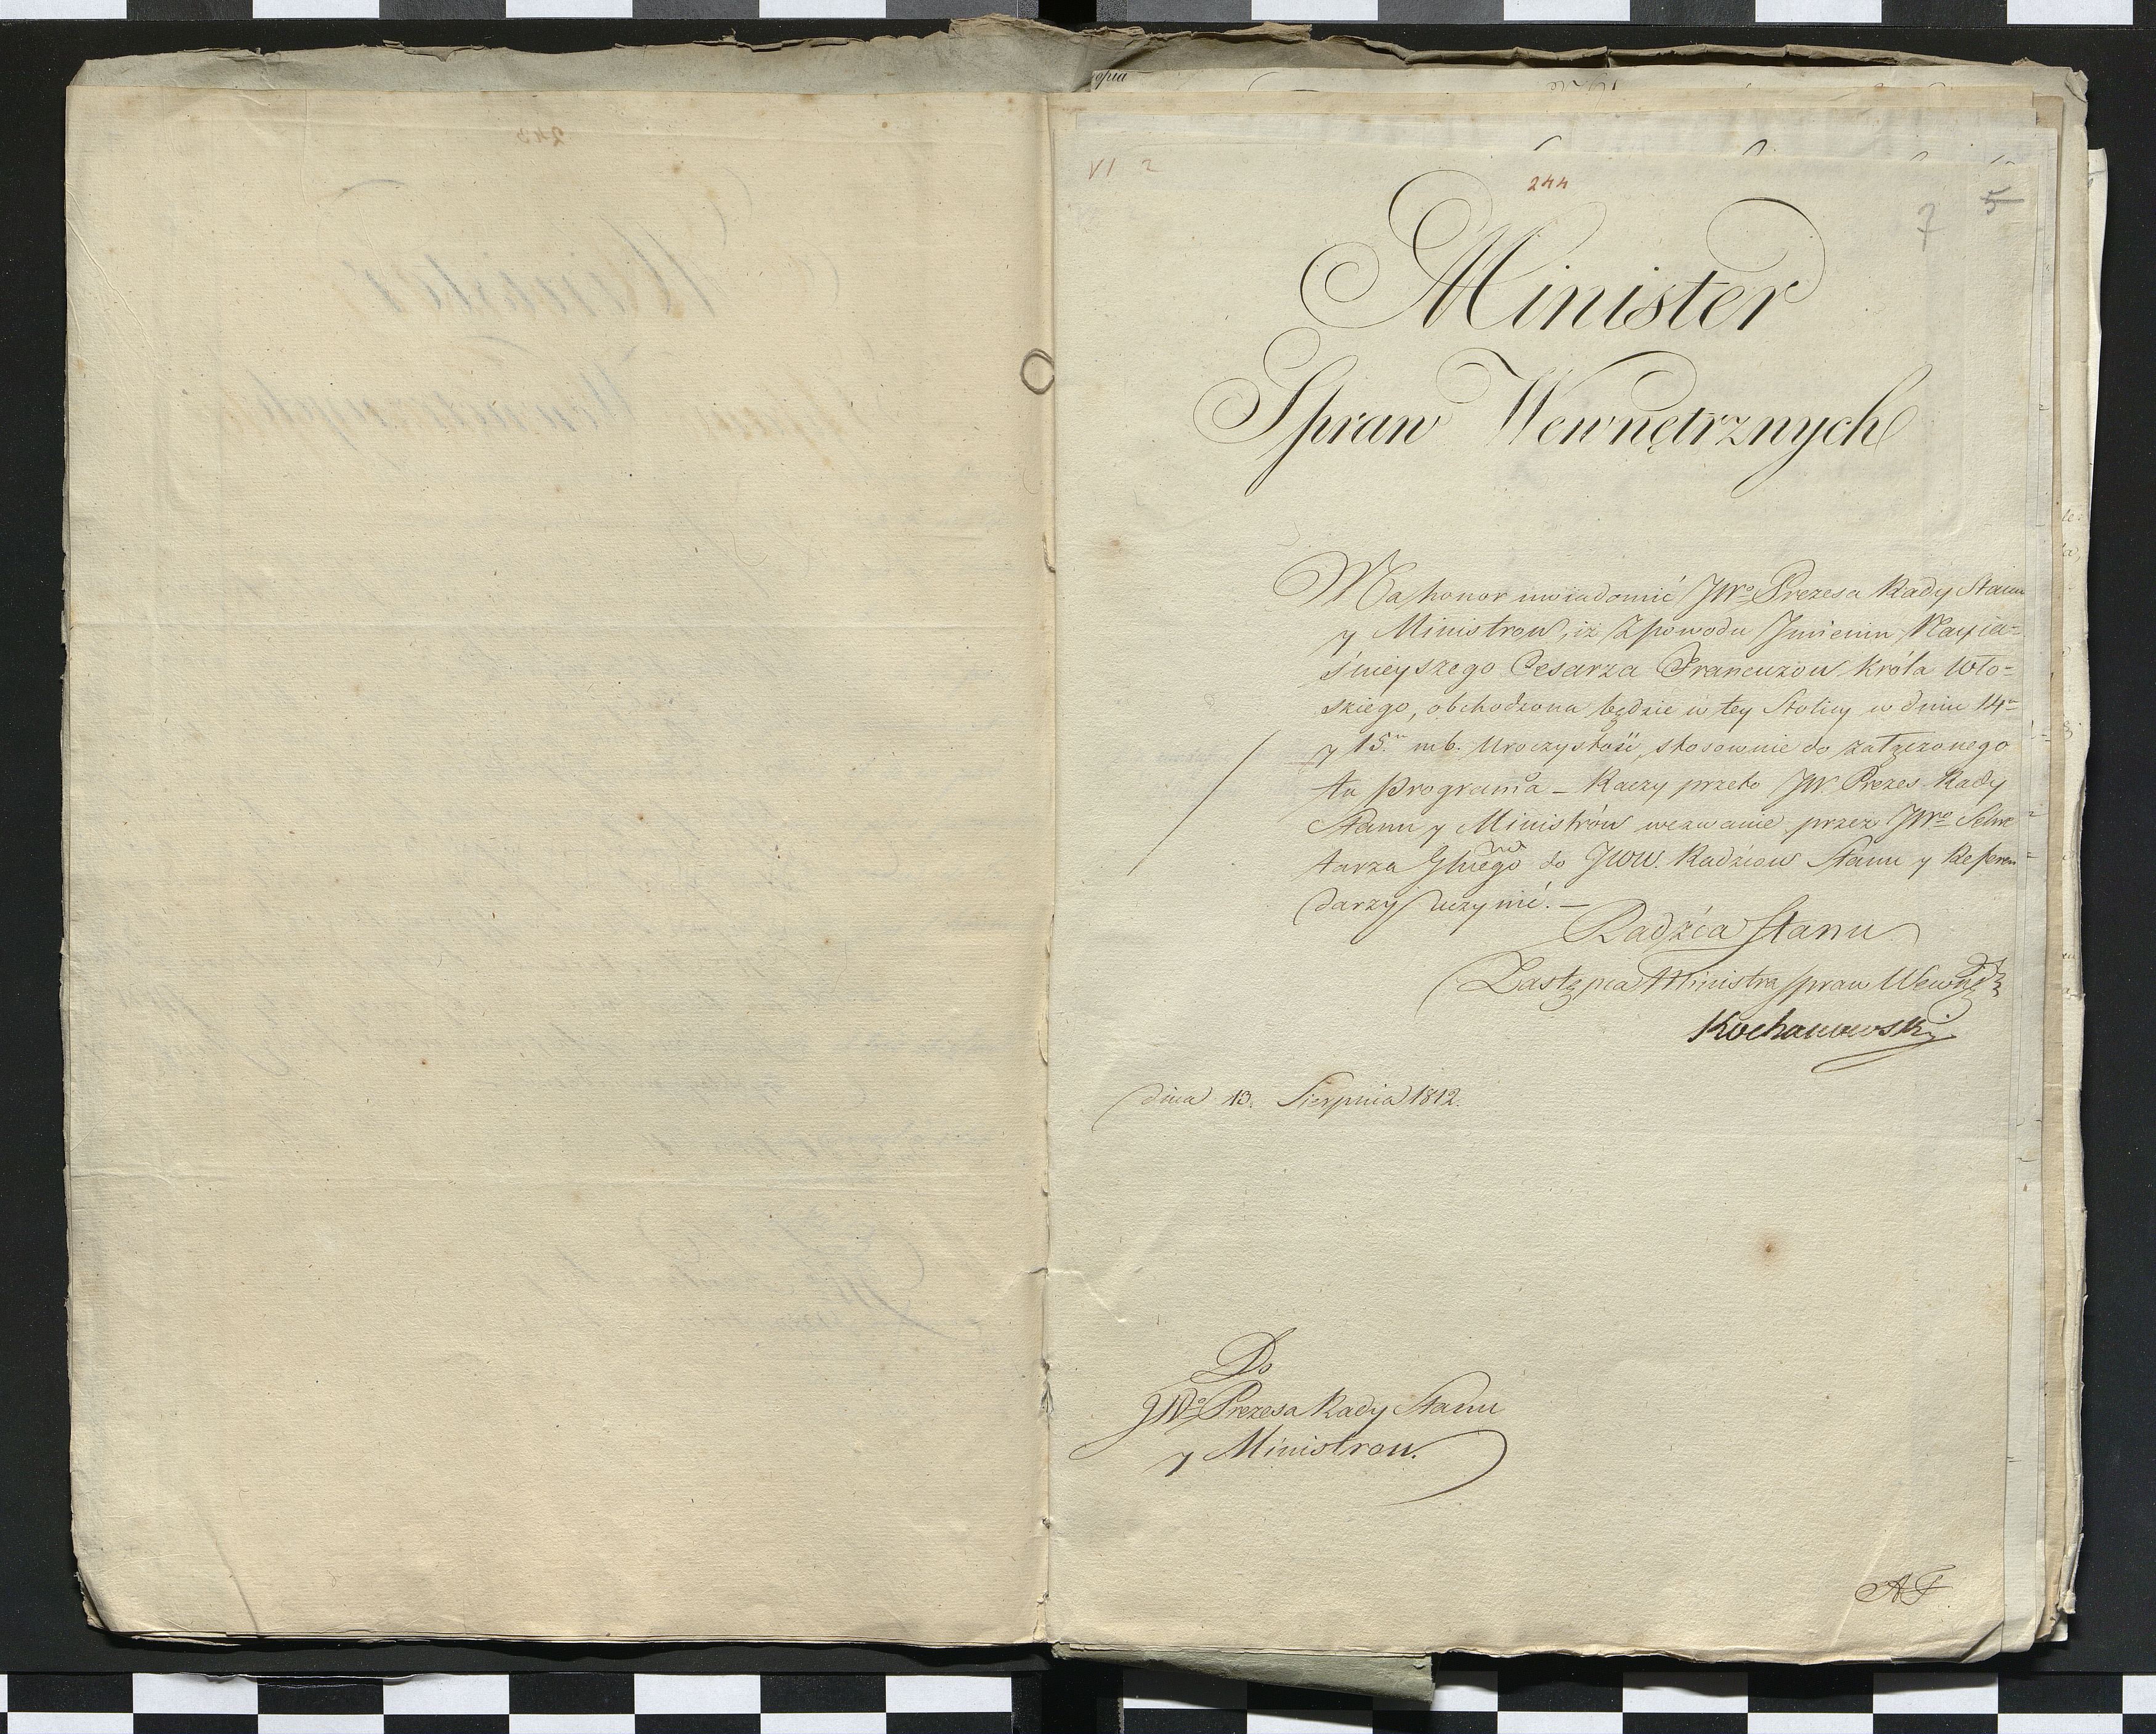 VI 2
244
7 5
Minister
Spraw Wewnętrznych
Ma honor uwiadomić JWo Prezesa Rady Stanu
y Ministrow, iż z powodu Jmienin Nayia=
śnieyszego Cesarza Francuzow Króla Wło=
skiego, obchodzona będzie w tey Stolicy w dniu 14m
y 15m mb. Uroczystość, stosownie do załączonego
tu programa – Raczy przeto JW Prezes Rady
Stanu y Ministrów wezwanie przez JWo Sekre
tarza Głnego do JWW. Radzcow Stanu y Referen=
darzy uczynić. –
Radźca Stanu
Zastępca Ministra Spraw Wewnę
Kochanowski
dnia 13. Sierpnia 1812.
Do
JWo Prezesa Rady Stanu
y Ministrow.
AF